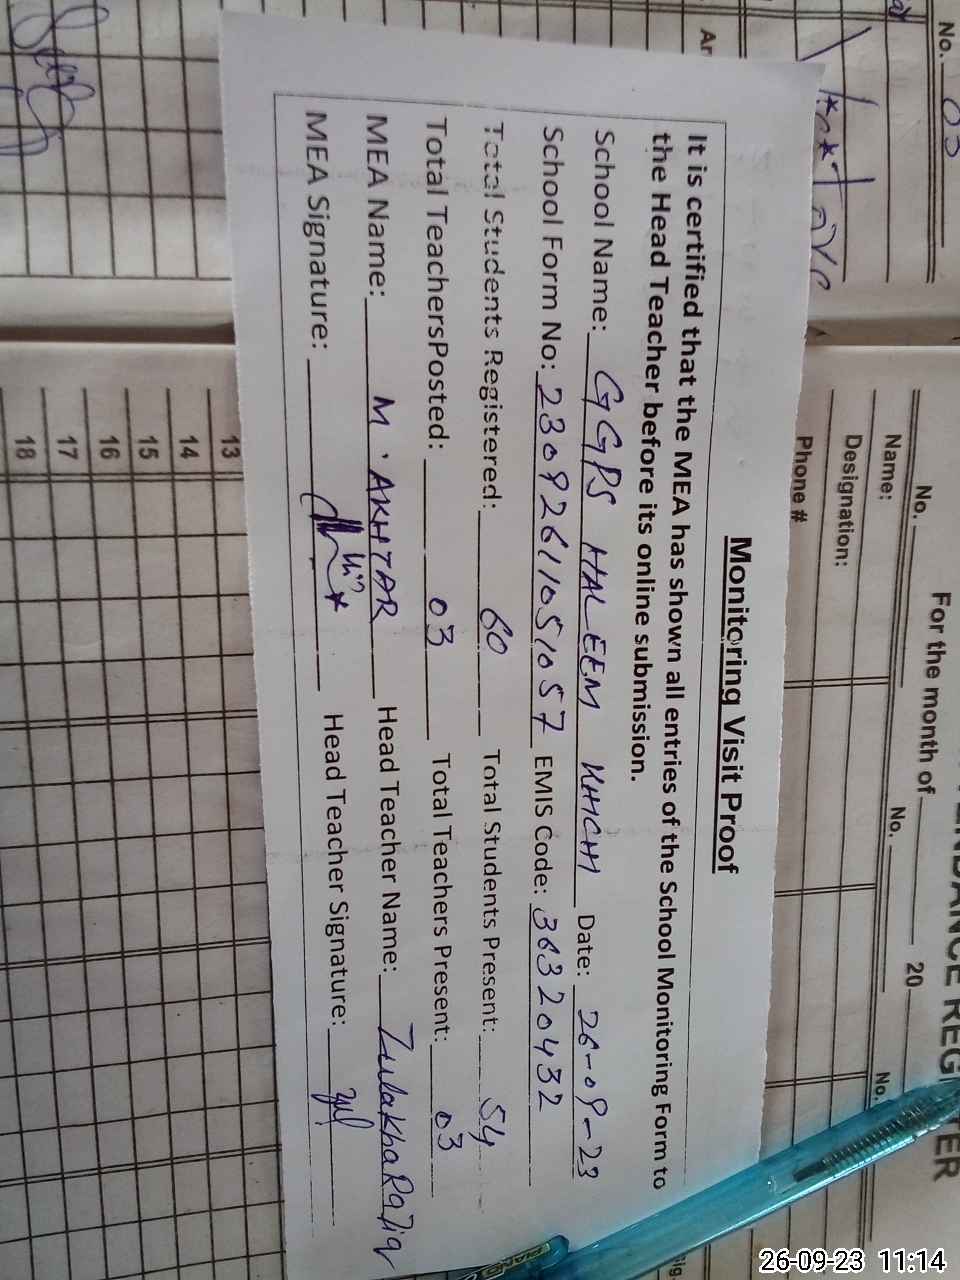 Monitoring Visit Proof
It is certified that the MEA has shown all entries of the School Monitoring Form to
the Head Teacher before its online submission.
School Name: GGPS HALEEM KHICHI Date: 26-09-23
School Form No: 23092611051057 EMIS Code: 36320432
Total Students Registered: 60 Total Students Present: 54
Total TeachersPosted: 03 Total Teachers Present: 03
MEA Name: M. AKHTAR Head Teacher Name: Zulakha Raziq
MEA Signature: Head Teacher Signature:
No. 03
For the month of 20
No. No. No.
Name:
Designation:
Phone #
13
14
15
16
17
18
26-09-23 11:14